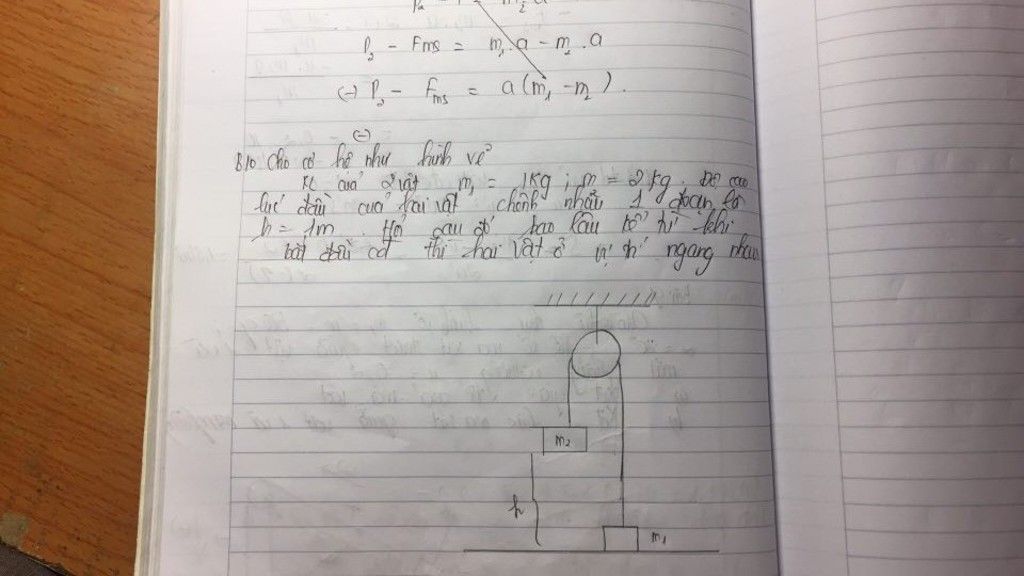 P₂ - Fms = m₁.a - m₂.a
(-) P₂ - Fms = a(m₁ - m₂).
(-)
B10 Cho cơ hệ như hình vẽ
KL của 2 vật m₁ = 1kg ; m = 2 kg. Độ cao
lúc đầu của hai vật chênh nhau 1 đoạn là
h = 1m. Hỏi sau đó bao lâu kể từ khi
bắt đầu cđ thì hai vật ở vị trí ngang nhau
m₂
h
m₁